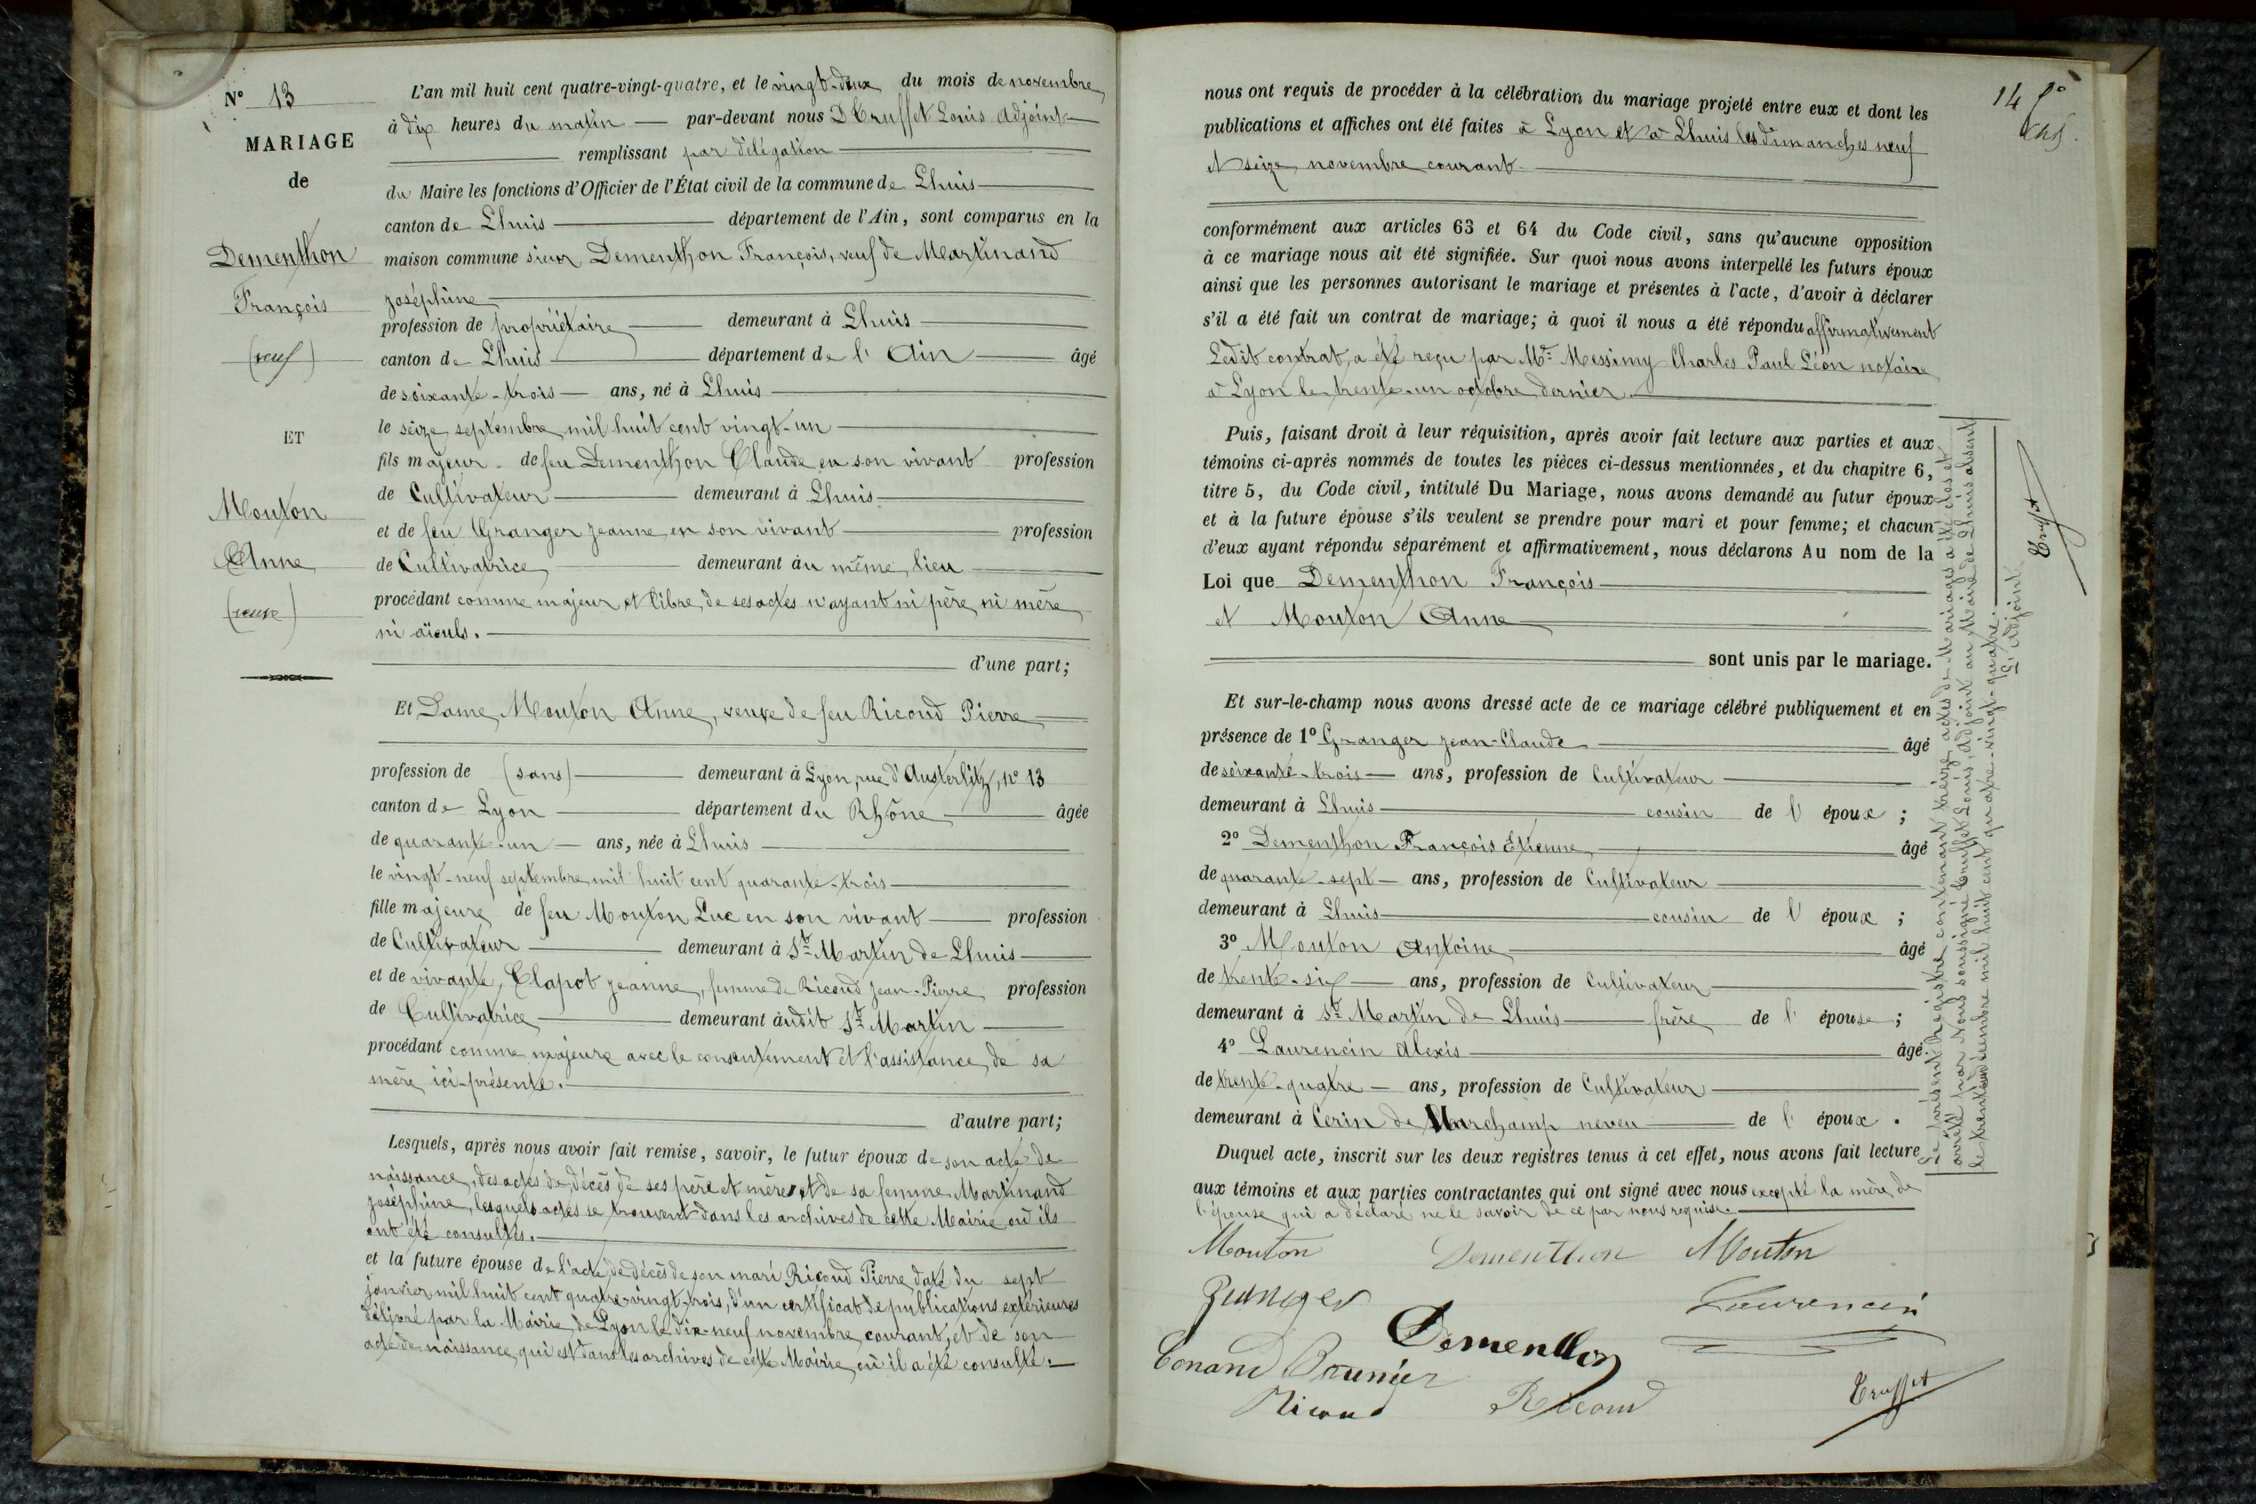 N° 13
MARIAGE
de
Dementhon
François
(veuf)
ET
Mouton
Anne
(veuve)
L'an mil huit cent quatre-vingt-quatre, et le vingt-deux du mois de novembre
à dix heures du matin — par-devant nous Truffet Louis Adjoint
remplissant par délégation
du Maire les fonctions d'Officier de l'État civil de la commune de Lhuis
canton de Lhuis département de l'Ain, sont comparus en la
maison commune sieur Dementhon François, veuf de Martinand
Joséphine
profession de propriétaire demeurant à Lhuis
canton de Lhuis département de l'Ain âgé
de soixante-trois ans, né à Lhuis
le seize septembre mil huit cent vingt-un
fils majeur de feu Dementhon Claude en son vivant profession
de Cultivateur demeurant à Lhuis
et de feu Granger Jeanne en son vivant profession
de Cultivatrice demeurant au même lieu
procédant comme majeur et libre de ses actes n'ayant ni père ni mère
ni aïeuls.
d'une part;
Et Dame Mouton Anne, veuve de feu Ricoud Pierre
profession de (sans) demeurant à Lyon, rue d'Austerlitz, n° 13
canton de Lyon département du Rhône âgée
de quarante-un ans, née à Lhuis
le vingt-neuf septembre mil huit cent quarante-trois
fille majeure de feu Mouton Luc en son vivant profession
de Cultivateur demeurant à St Martin de Lhuis
et de vivante Clapot Jeanne, femme de Ricoud Jean-Pierre profession
de Cultivatrice demeurant audit St Martin
procédant comme majeure avec le consentement et l'assistance de sa
mère ici-présente.
d'autre part;
Lesquels, après nous avoir fait remise, savoir, le futur époux de son acte de
naissance, des actes de décès de ses père et mère et de sa femme Martinand
Joséphine, lesquels actes se trouvent dans les archives de cette Mairie où ils
ont été consultés.
et la future épouse de l'acte de décès de son mari Ricoud Pierre daté du sept
janvier mil huit cent quatre-vingt-trois, d'un certificat de publications extérieures
délivré par la Mairie de Lyon le dix-neuf novembre courant, et de son
acte de naissance qui est dans les archives de cette Mairie où il a été consulté.
nous ont requis de procéder à la célébration du mariage projeté entre eux et dont les
publications et affiches ont été faites à Lyon et à Lhuis les dimanches neuf
et seize novembre courant
conformément aux articles 63 et 64 du Code civil, sans qu'aucune opposition
à ce mariage nous ait été signifiée. Sur quoi nous avons interpellé les futurs époux
ainsi que les personnes autorisant le mariage et présentes à l'acte, d'avoir à déclarer
s'il a été fait un contrat de mariage; à quoi il nous a été répondu affirmativement
Ledit contrat, a été reçu par Me Messimy Charles Paul Léon notaire
à Lyon le trente-un octobre dernier.
Puis, faisant droit à leur réquisition, après avoir fait lecture aux parties et aux
témoins ci-après nommés de toutes les pièces ci-dessus mentionnées, et du chapitre 6,
titre 5, du Code civil, intitulé Du Mariage, nous avons demandé au futur époux
et à la future épouse s'ils veulent se prendre pour mari et pour femme; et chacun
d'eux ayant répondu séparément et affirmativement, nous déclarons Au nom de la
Loi que Dementhon François
et Mouton Anne
sont unis par le mariage.
Et sur-le-champ nous avons dressé acte de ce mariage célébré publiquement et en
présence de 1° Granger Jean-Claude âgé
de soixante-trois ans, profession de Cultivateur
demeurant à Lhuis cousin de l'époux ;
2° Dementhon François Etienne âgé
de quarante-sept ans, profession de Cultivateur
demeurant à Lhuis cousin de l'époux ;
3° Mouton Antoine âgé
de trente-six ans, profession de Cultivateur
demeurant à St Martin de Lhuis frère de l'épouse ;
4° Laurencin Alexis âgé
de trente-quatre ans, profession de Cultivateur
demeurant à Cerin de Marchamp neveu de l'époux .
Duquel acte, inscrit sur les deux registres tenus à cet effet, nous avons fait lecture
aux témoins et aux parties contractantes qui ont signé avec nous excepté la mère de
l'épouse qui a déclaré ne le savoir de ce par nous requise.
Mouton Dementhon Mouton
Granger Laurencin
Dementhon
Conand Brunier
Ricoud Ricoud Truffet
Le présent registre contenant treize actes de Mariages a été clos et
arrêté par Nous soussigné Truffet Louis, Adjoint au Maire de Lhuis absent
le trente-un décembre mil huit cent quatre-vingt-quatre.
L'Adjoint
Truffet